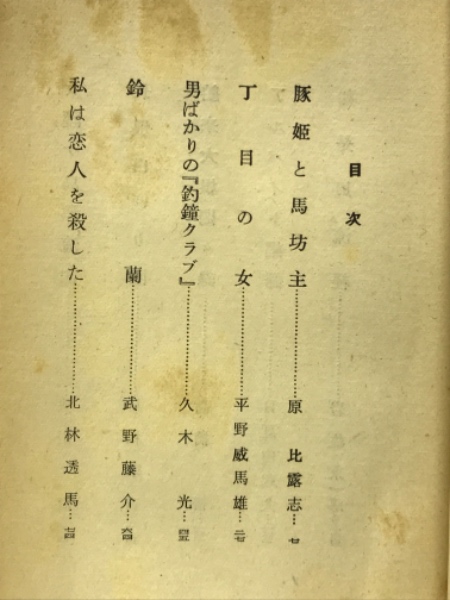 目次
豚姫と馬坊主……原比露志…
丁目の女……平野威馬雄…
男ばかりの『釣鐘クラブ』……久木光…
鈴蘭……武野藤介…
私は恋人を殺した……北林透馬…